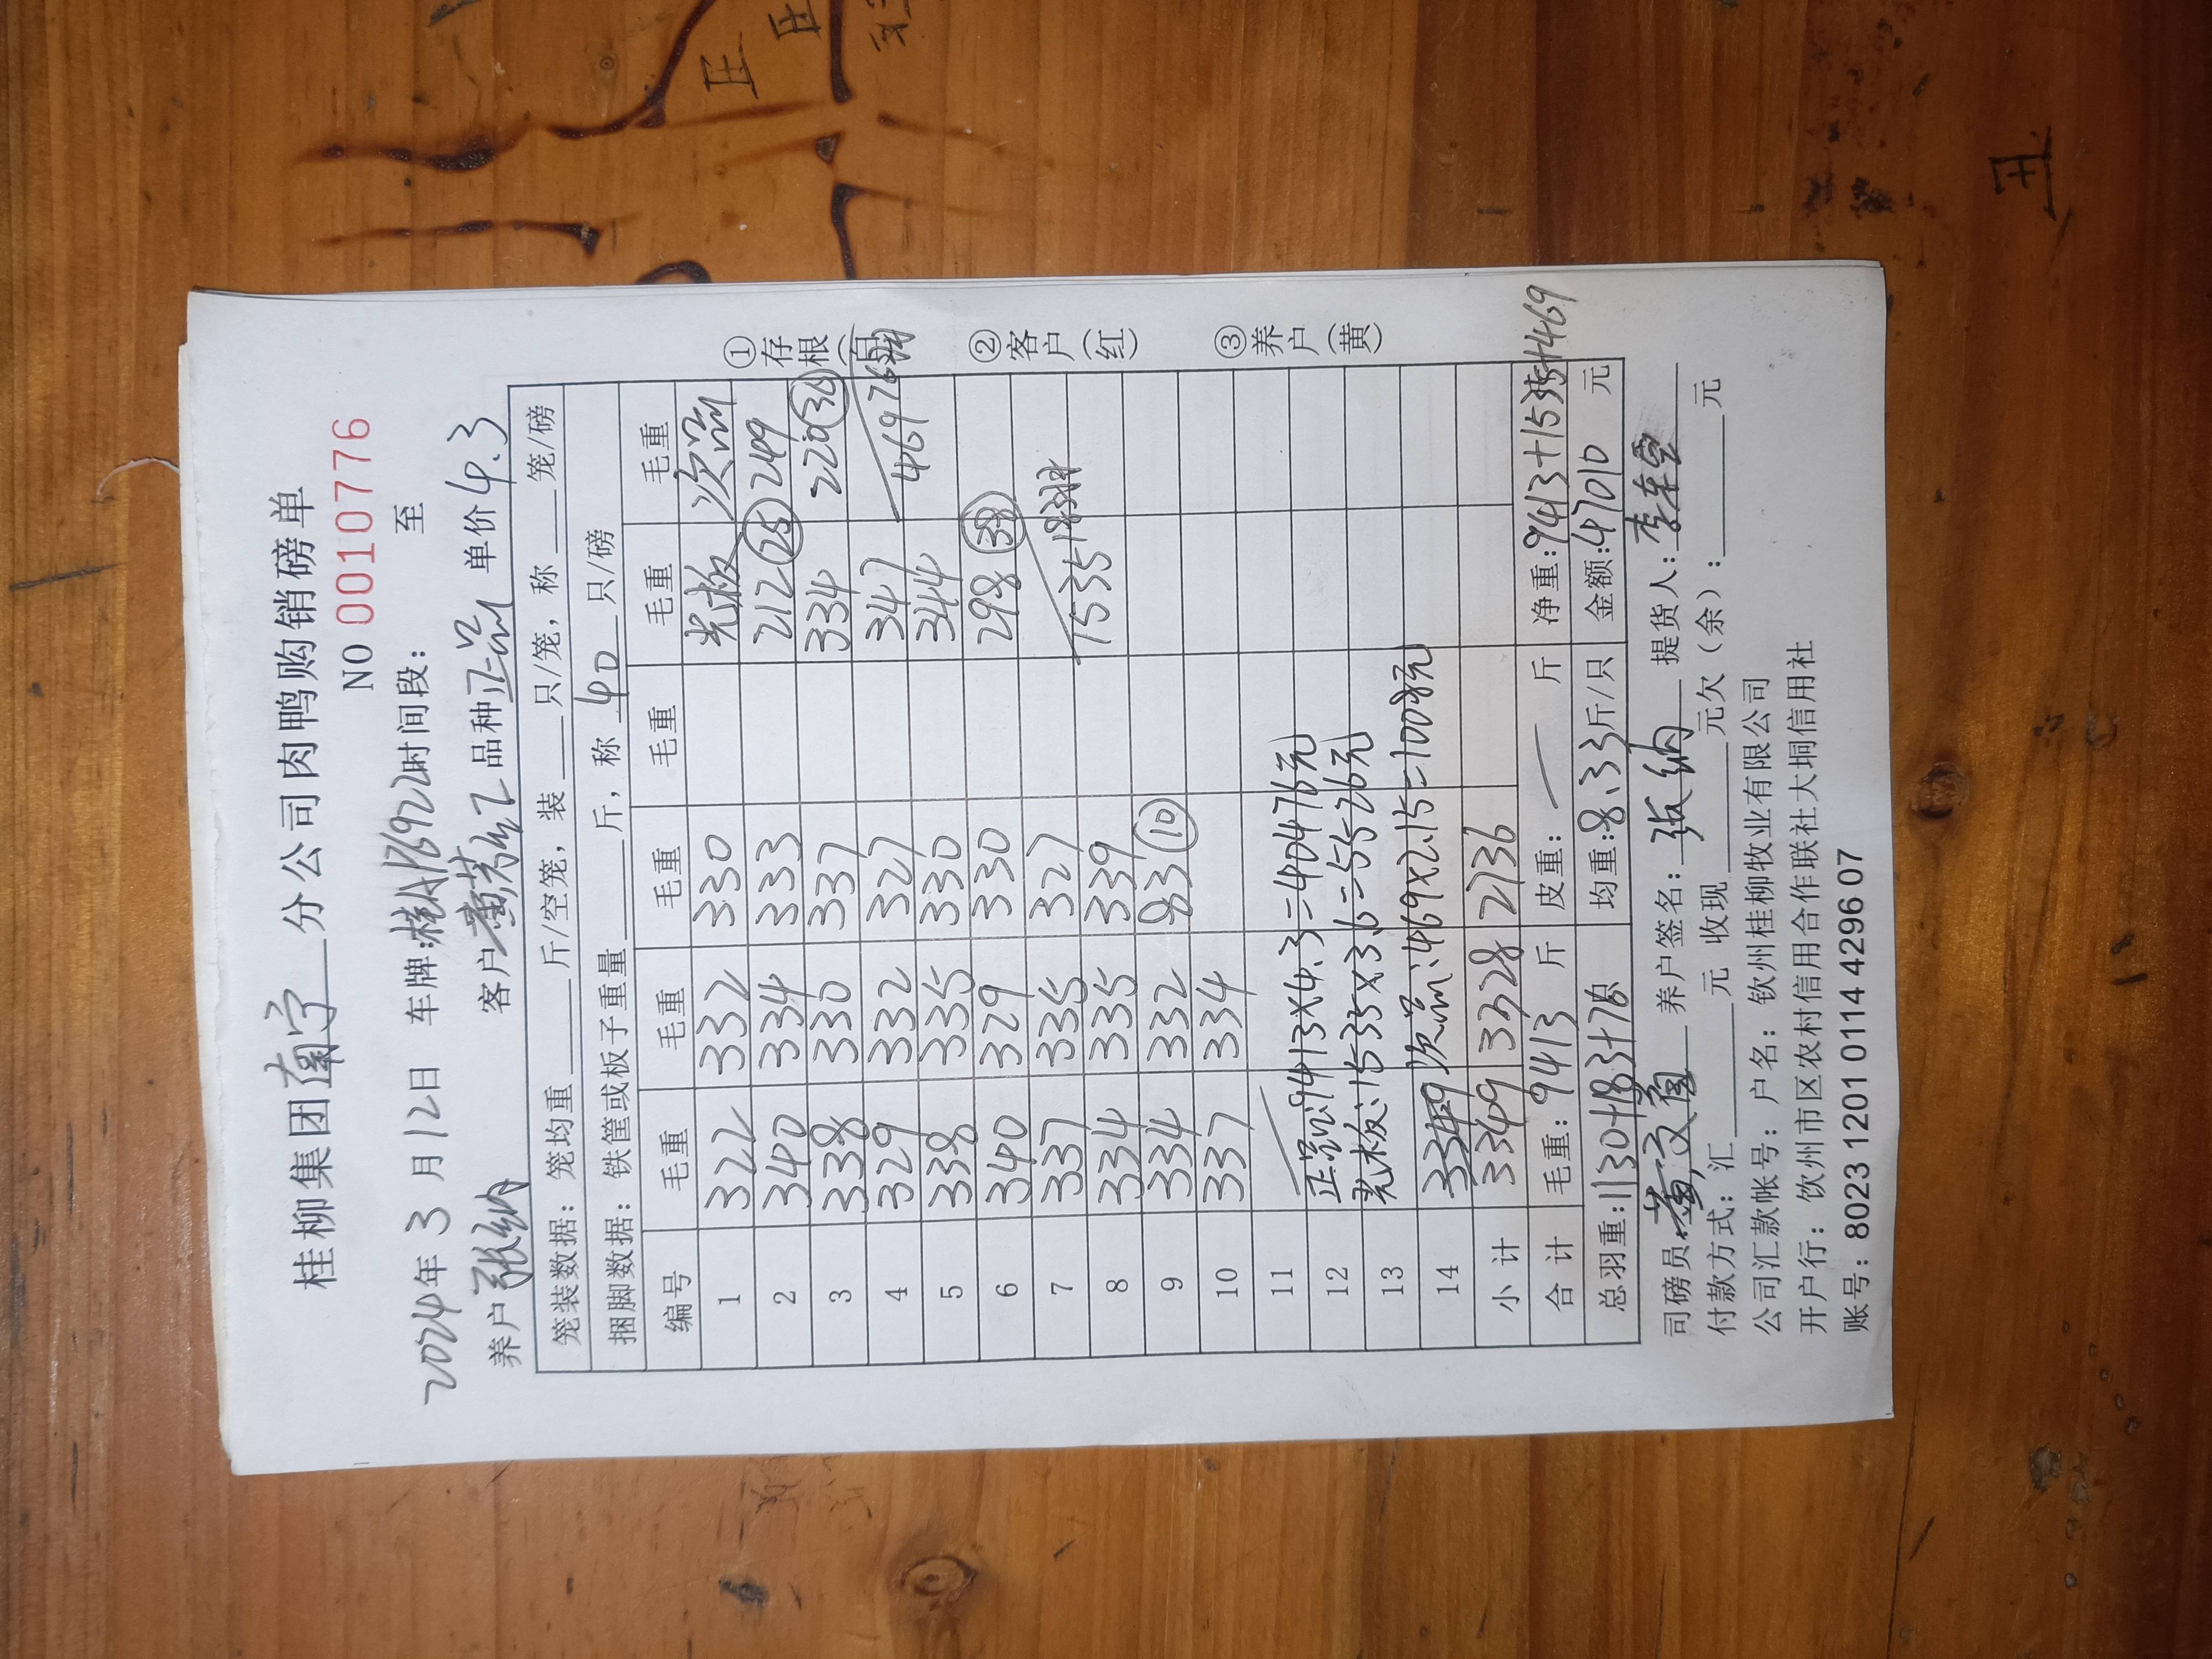 桂柳集团南宁分公司肉鸭购销磅单
NO 0010776
2024年3月12日 车牌:桂AP6922时间段: 至
养户张纳 客户黄芳乙品种正品 单价4.3
笼装数据: 笼均重 斤/空笼, 装 只/笼, 称 笼/磅
捆脚数据: 铁筐或板子重量 斤, 称 40 只/磅
编号 毛重 毛重 毛重 毛重 毛重 毛重
1 322 332 330 光板 次品
2 340 334 333 212 (25) 249
3 338 330 337 334 220 (36)
4 329 332 327 347
5 338 335 330 344 469 76只
6 340 329 330 298 (38)
7 337 335 327
8 334 335 339 1535 183只
9 334 332 83 (10)
10 337 334
11
12 正品:9413×4.3=40476元
13 光板:1535×3.6=5526元
14 3349 次品:469×2.15=1008元
小计 3349 3328 2736
合计 毛重:9413 斤 皮重: 斤 净重:9413+1535+469
总羽重:1130+183+76只 均重:8.33斤/只 金额:47010 元
司磅员: 黄文 养户签名: 张纳 提货人:
付款方式: 汇 元 收现 元欠(余): 元
公司汇款帐号: 户名: 钦州桂柳牧业有限公司
开户行: 钦州市区农村信用合作联社大垌信用社
账号: 8023 1201 0114 4296 07
①存根(白)
②客户(红)
③养户(黄)